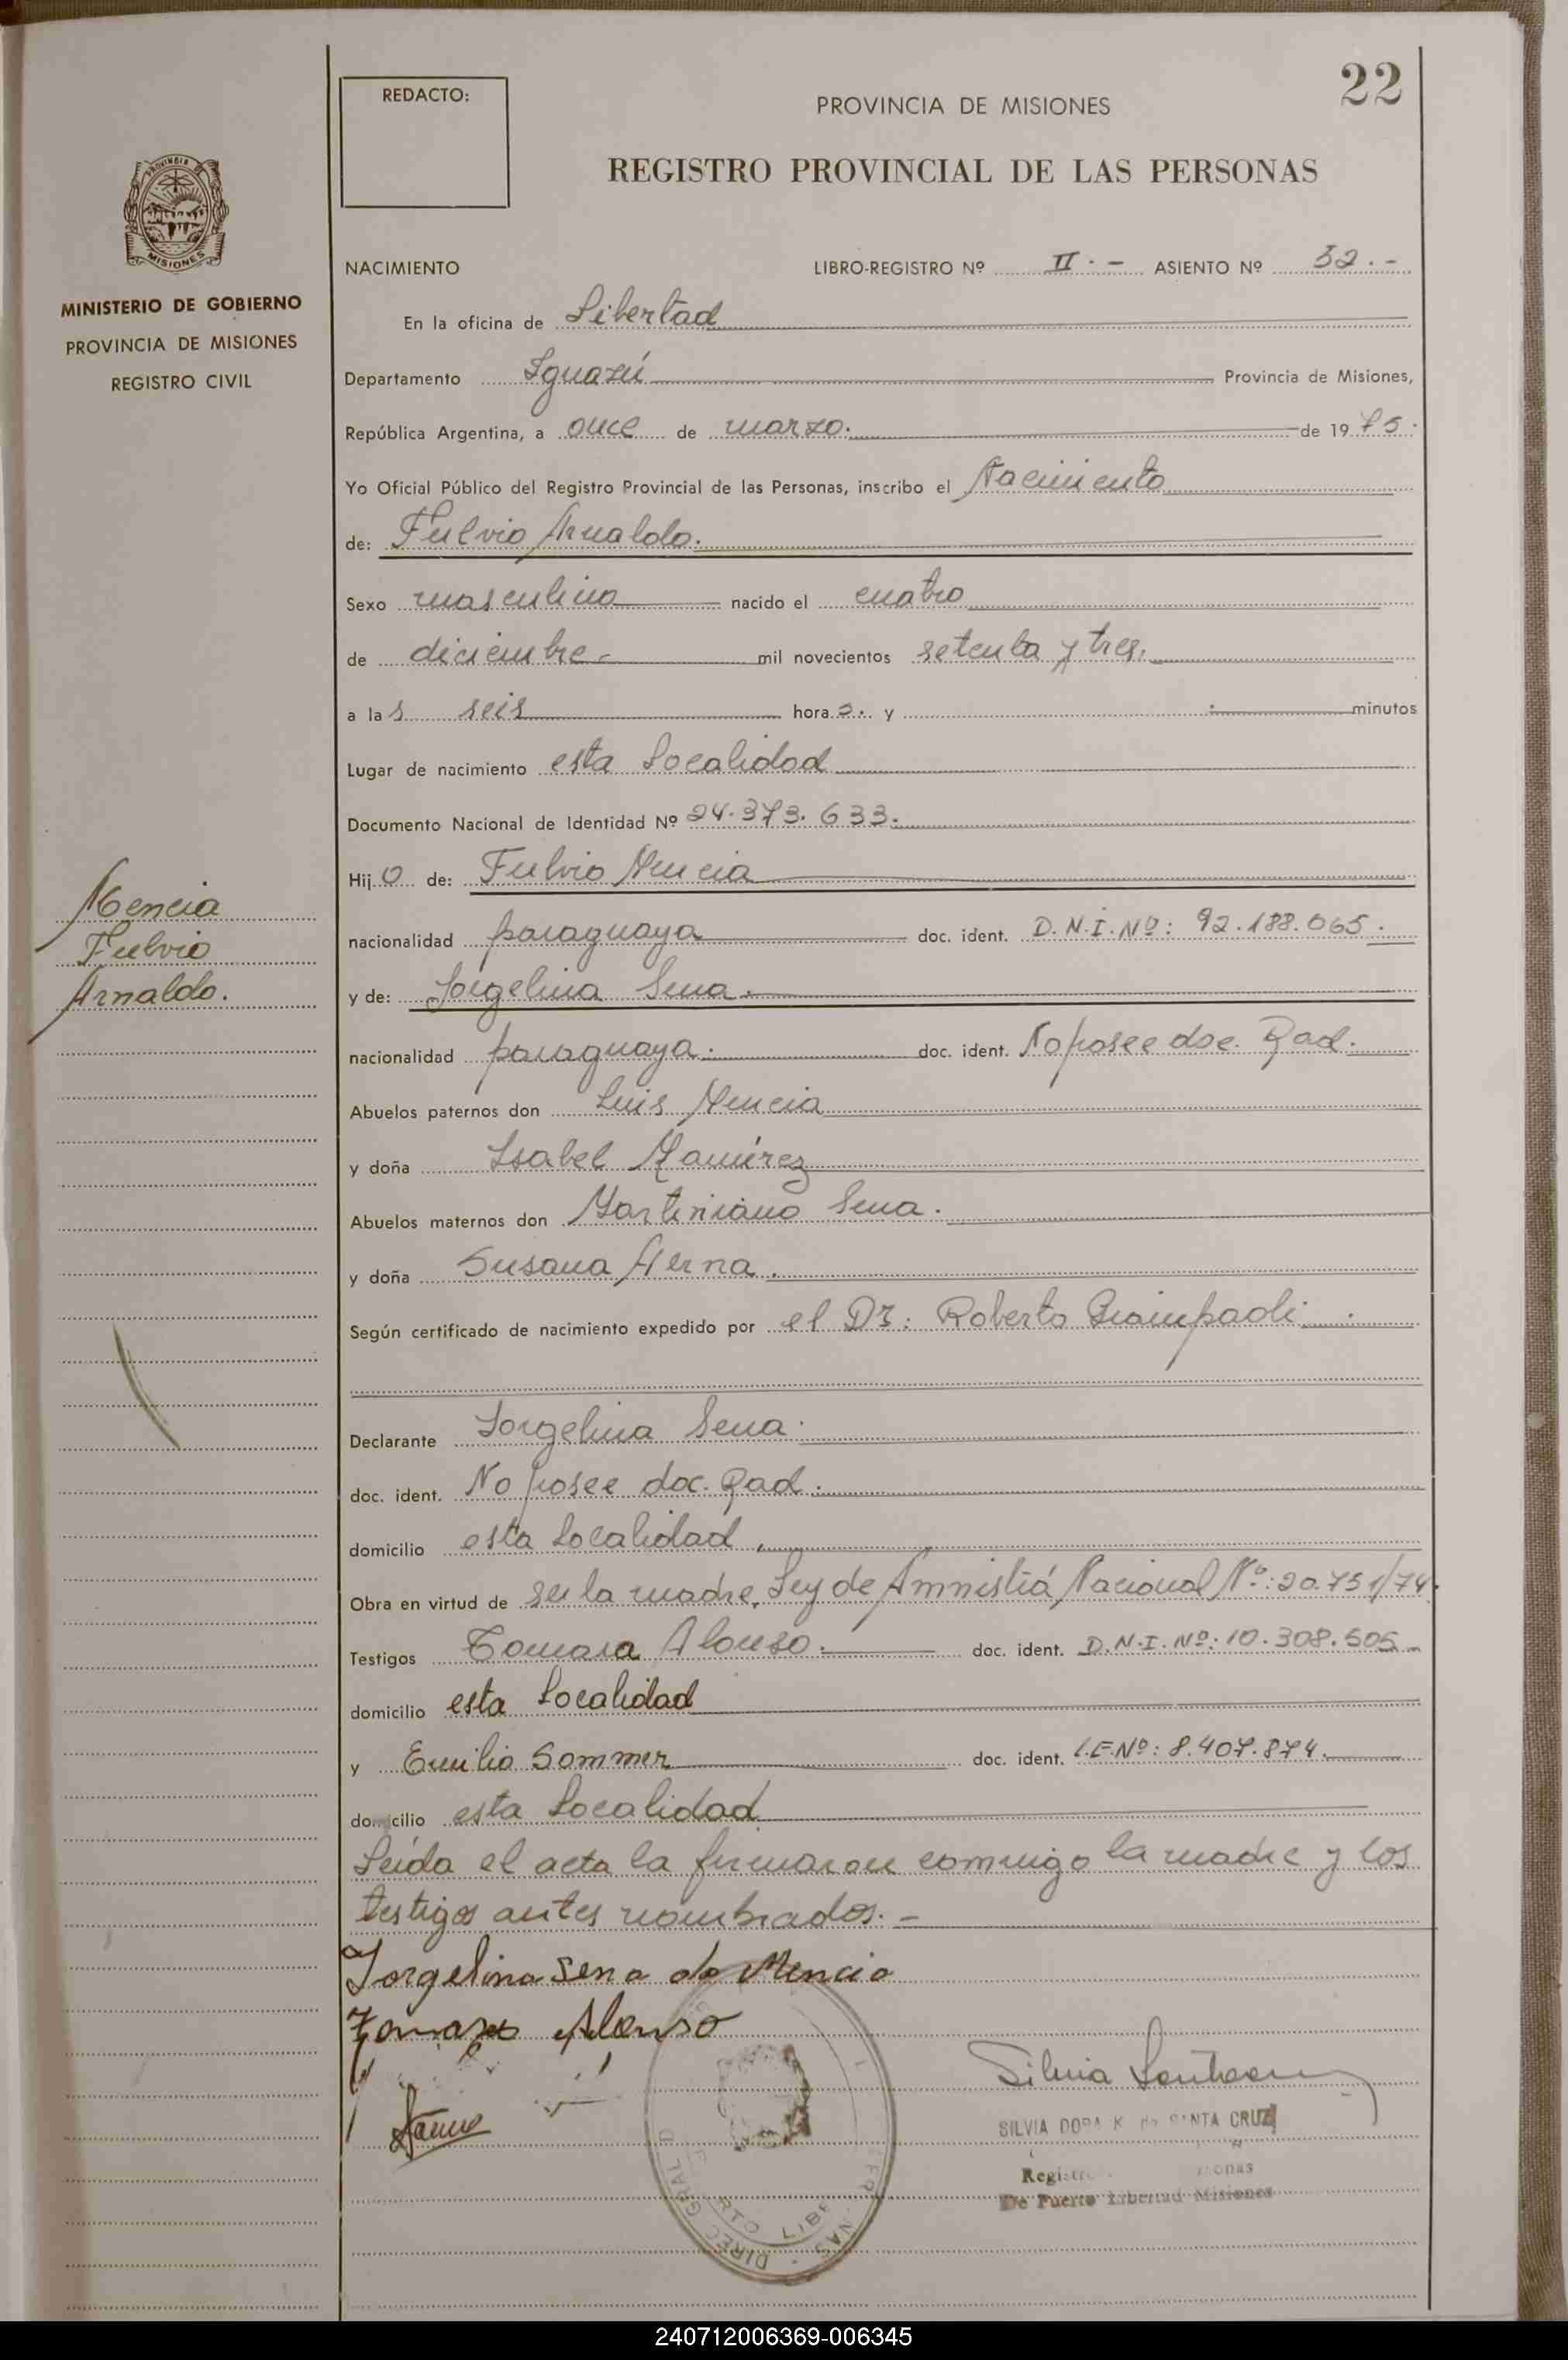 22
REDACTO:
PROVINCIA DE MISIONES
REGISTRO PROVINCIAL DE LAS PERSONAS
PROVINCIA DE
MISIONES
MINISTERIO DE GOBIERNO
PROVINCIA DE MISIONES
REGISTRO CIVIL
NACIMIENTO LIBRO-REGISTRO Nº II.- ASIENTO Nº 32.-
En la oficina de Libertad
Departamento Iguazú Provincia de Misiones,
República Argentina, a once de marzo. de 1975.
Yo Oficial Público del Registro Provincial de las Personas, inscribo el Nacimiento
de: Fulvio Arnaldo.
Sexo masculino nacido el cuatro
de diciembre- mil novecientos setenta y tres.
a las seis horas. y minutos
Lugar de nacimiento esta Localidad
Documento Nacional de Identidad Nº 24.373.633.
Hijo de: Fulvio Mencia
Mencia
Fulvio
Arnaldo.
nacionalidad paraguaya doc. ident. D.N.I.Nº: 92.188.065.
y de: Jorgelina Sena.
nacionalidad paraguaya. doc. ident. No posee doc. Rad.
Abuelos paternos don Luis Mencia
y doña Isabel Ramirez
Abuelos maternos don Martiniano Sena.
y doña Susana
Según certificado de nacimiento expedido por el Dr: Roberto Giampaoli.
Declarante Jorgelina Sena.
doc. ident. No posee doc. Rad.
domicilio esta Localidad.
Obra en virtud de ser la madre. Ley de Amnistiá Nacional Nº:20.751/74.
Testigos Tomasa Alonso. doc. ident. D.N.I.Nº:10.308.505-
domicilio esta Localidad
y Emilio Sommer doc. ident. L.E.Nº: 8.407.874.
domicilio esta Localidad
Leída el acta la firmaron conmigo la madre y los
testigos antes nombrados.-
Jorgelina Sena de Mencia
Tomasa Alonso
Silvia
SILVIA DORA K. de SANTA CRUZ
De Puerto Libertad Misiones
240712006369-006345